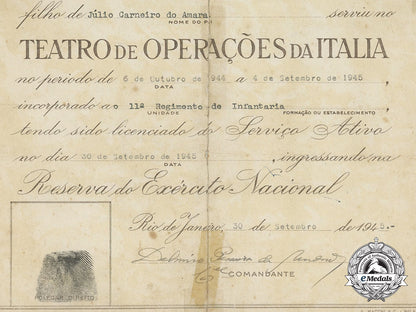 filho de Júlio Carneiro do Amara serviu no
NOME DO P
TEATRO DE OPERAÇÕES DA ITALIA
no periodo de 6 de Outubro de 1944 a 4 de Setembro de 1945,
DATA
incorporado a o 11º Regimento de Infantaria
UNIDADE FORMAÇÃO OU ESTABELECIMENTO
tendo sido licenciado do Serviço Ativo
no dia 30 de Setembro de 1945, ingressando na
DATA
Reserva do Exército Nacional
Rio de Janeiro, 30 de Setembro de 1945.-
COMANDANTE
POLEGAR DIREITO
eMedals